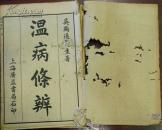 吳鞠通先生著
溫病條辨
上海廣益書局石印